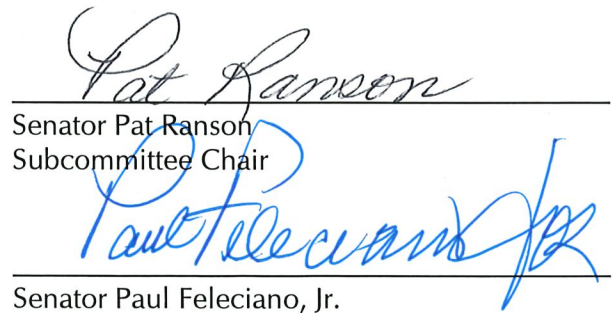 Pat Ranson
Senator Pat Ranson
Subcommittee Chair
Paul Feleciano Jr.
Senator Paul Feleciano, Jr.